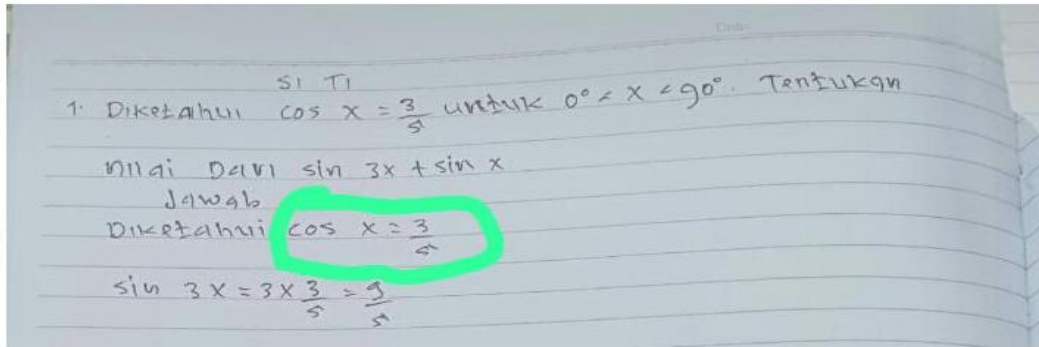 SI TI
1. Diketahui cos x = 3/5 untuk 0° < x < 90°. Tentukan
nilai Dari sin 3x + sin x
Jawab
Diketahui cos x = 3/5
sin 3x = 3 x 3/5 = 9/5